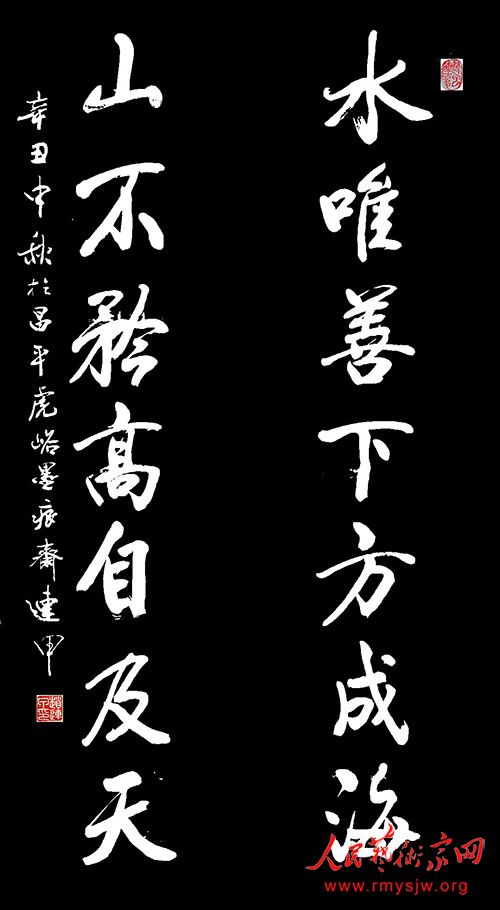 水唯善下方成海
山不矜高自及天
辛丑中秋於昌平虎峪墨痕齋連甲
人民藝術家网
www.rmysjw.org